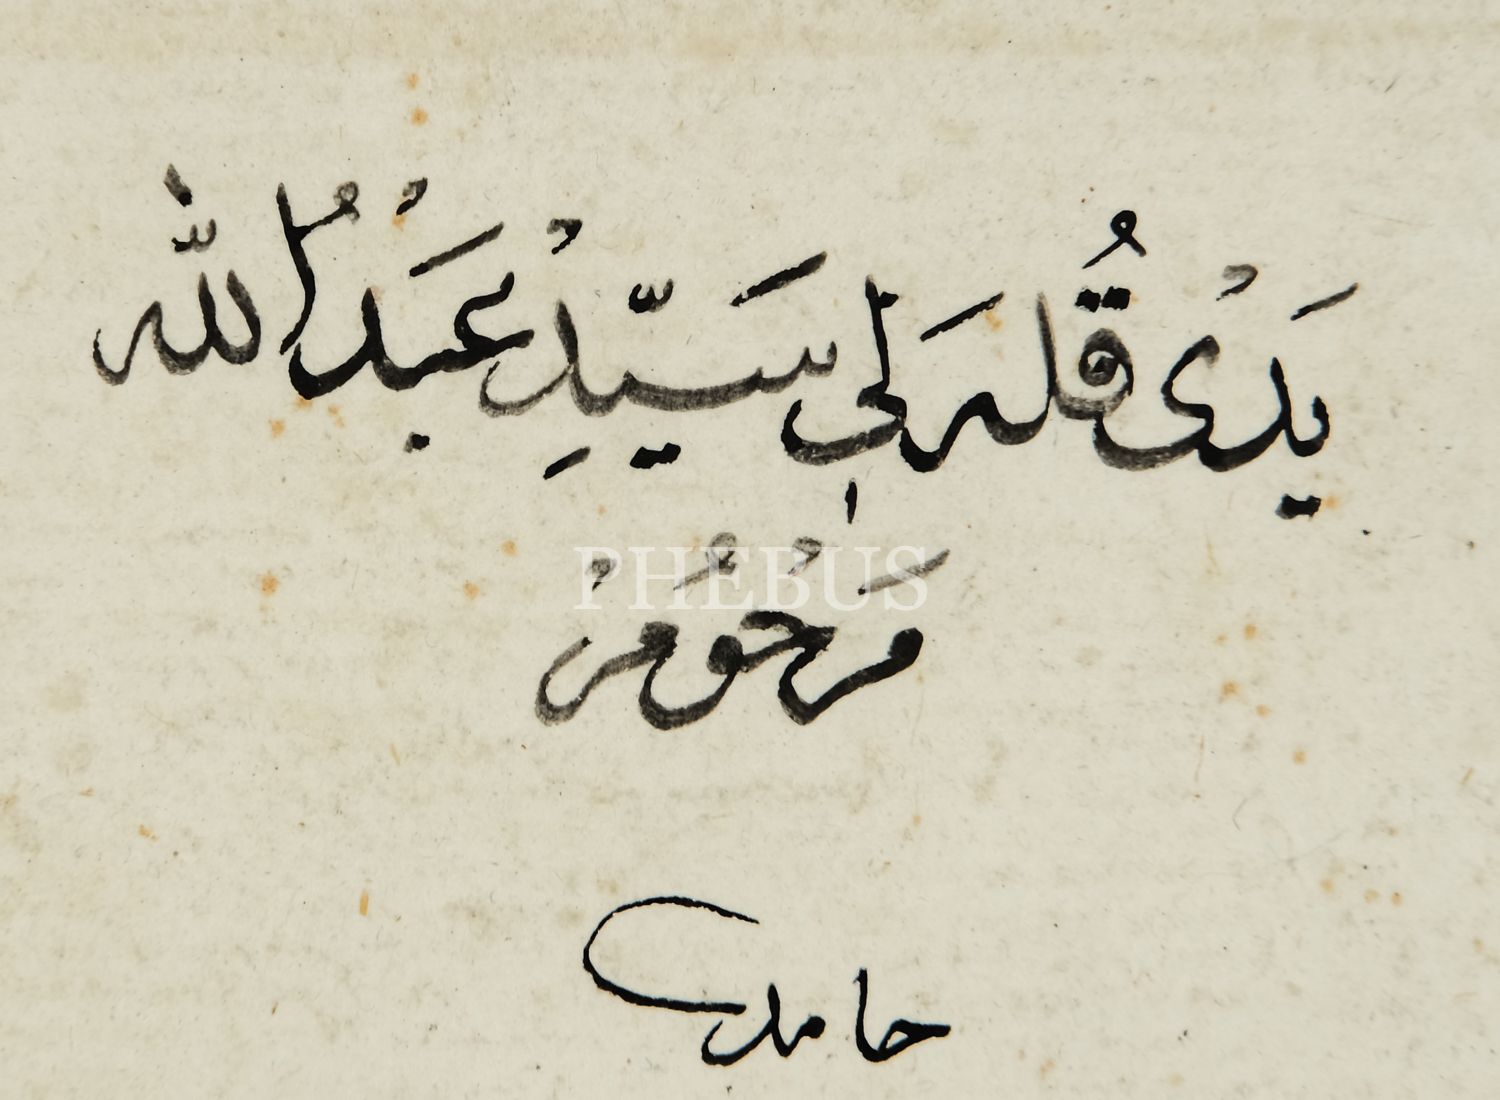 يَدْى قُلهَ لِى سَيِّدْ عَبْدُ اللّٰه
PHEBUS
مَرْحُومْ
حامد